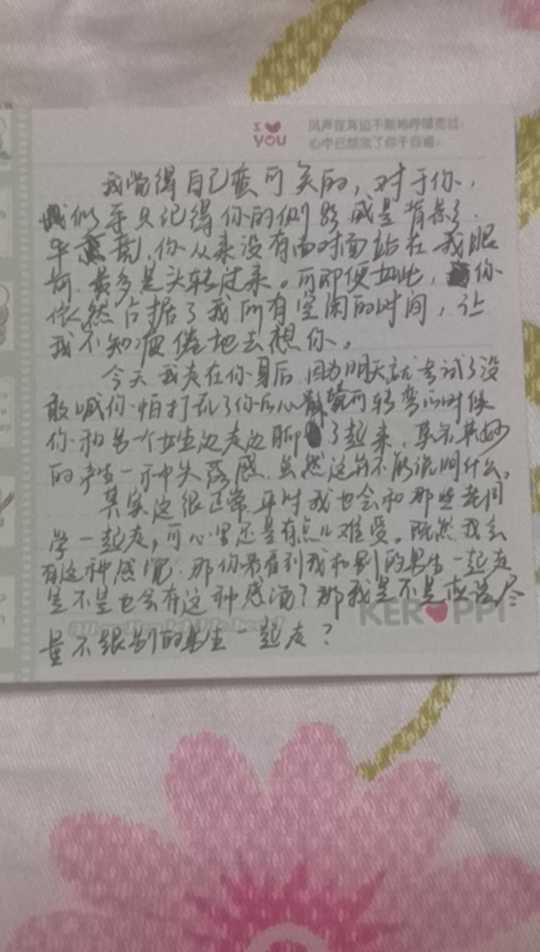 I YOU
风声在耳边不断地呼啸而过
心中已想念了你千百遍
我觉得自己蛮可笑的，对于你，
我似乎只记得你的侧脸或是背影了.
毕竟，你从来没有面对面站在我眼
前.最多是头转过来。可即便如此，你
依然占据了我所有空闲的时间，让
我不知疲倦地去想你。
今天我走在你身后,因为明天就考试了没
敢喊你.怕打乱了你的心 可转弯的时候
你和另一个女生边走边聊了起来.莫名其妙
的产生一种失落感.虽然这并不能说明什么。
其实这很正常.平时我也会和那些老同
学一起走，可心里还是有点儿难受。既然我会
有这种感呢.那你若看到我和别的男生一起走
是不是也会有这种感酒？那我是不是应该尽
KEROPPI
量不跟别的男生一起走？